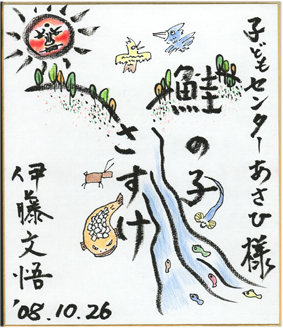 子どもセンターあさひ様
鮭の子
さすけ
伊藤文悟
'08.10.26